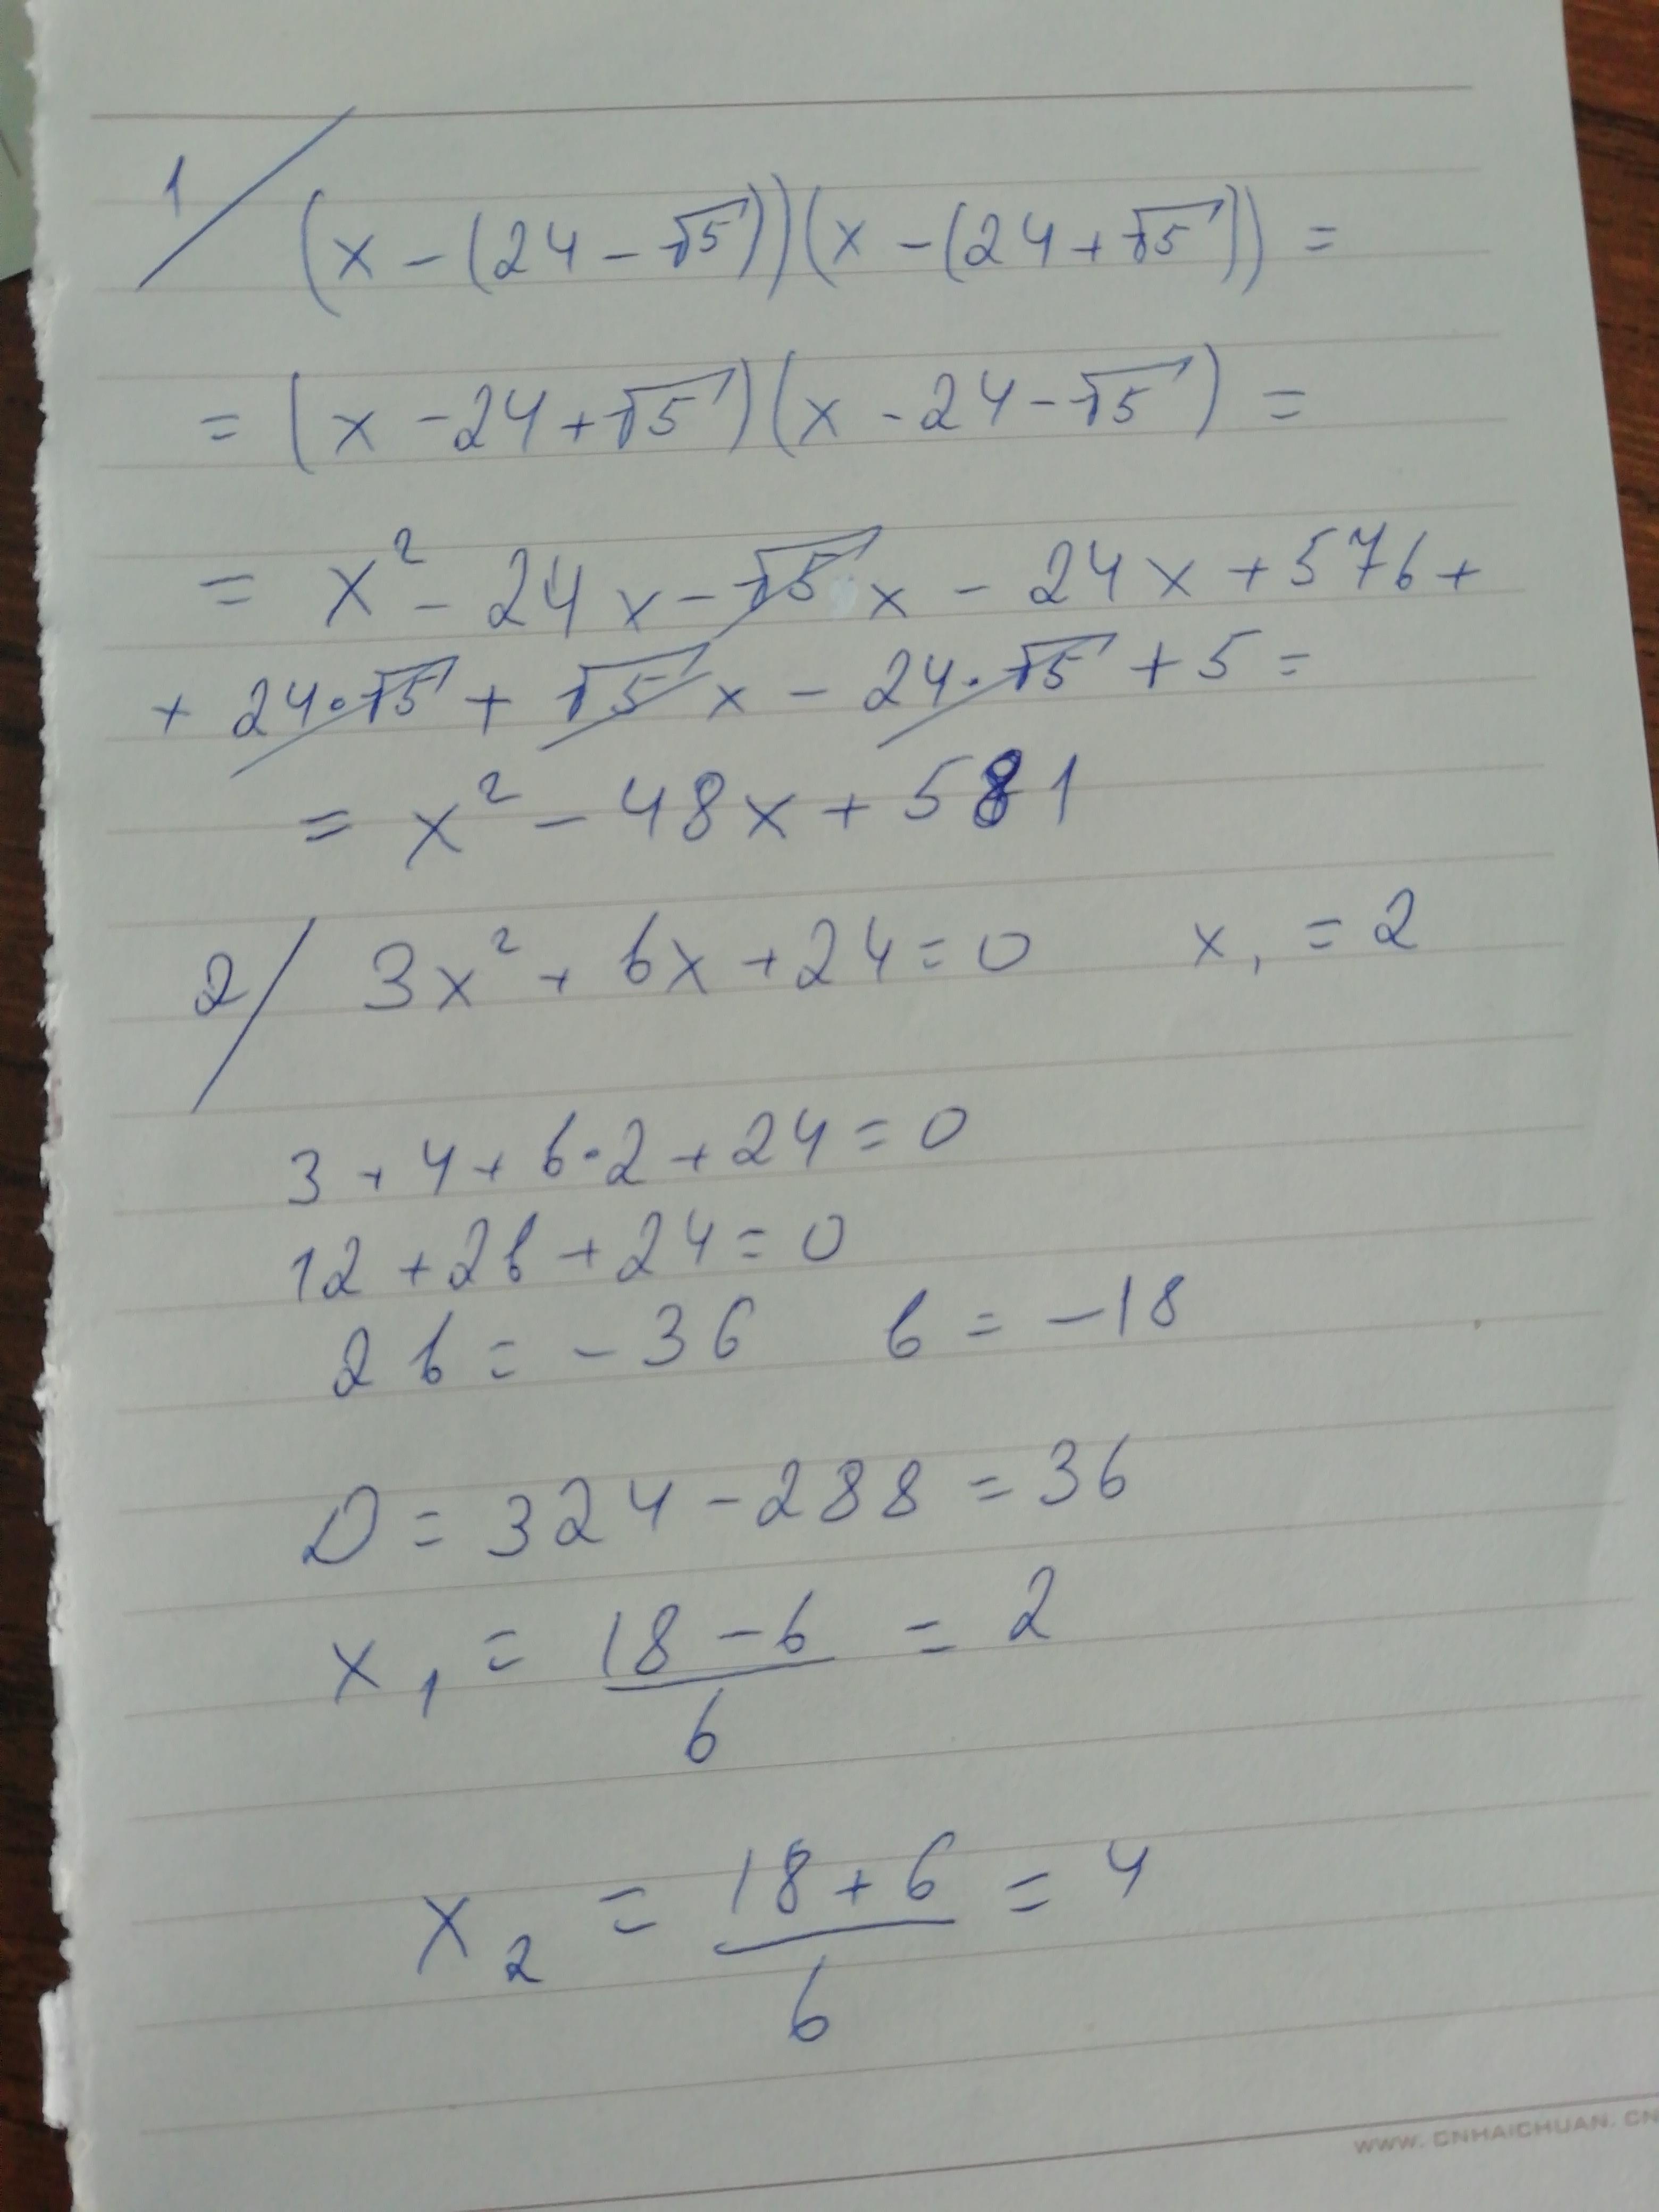 1/
(x - (24 - √5))(x - (24 + √5)) =
= (x - 24 + √5)(x - 24 - √5) =
= x² - 24x - √5 x - 24x + 576 +
+ 24·√5 + √5 x - 24·√5 + 5 =
= x² - 48x + 581
2/ 3x² + bx + 24 = 0 x₁ = 2
3 + 4 + b·2 + 24 = 0
12 + 2b + 24 = 0
2b = -36 b = -18
D = 324 - 288 = 36
x₁ = (18 - 6)/6 = 2
x₂ = (18 + 6)/6 = 4
WWW. CNHAICHUAN. CN